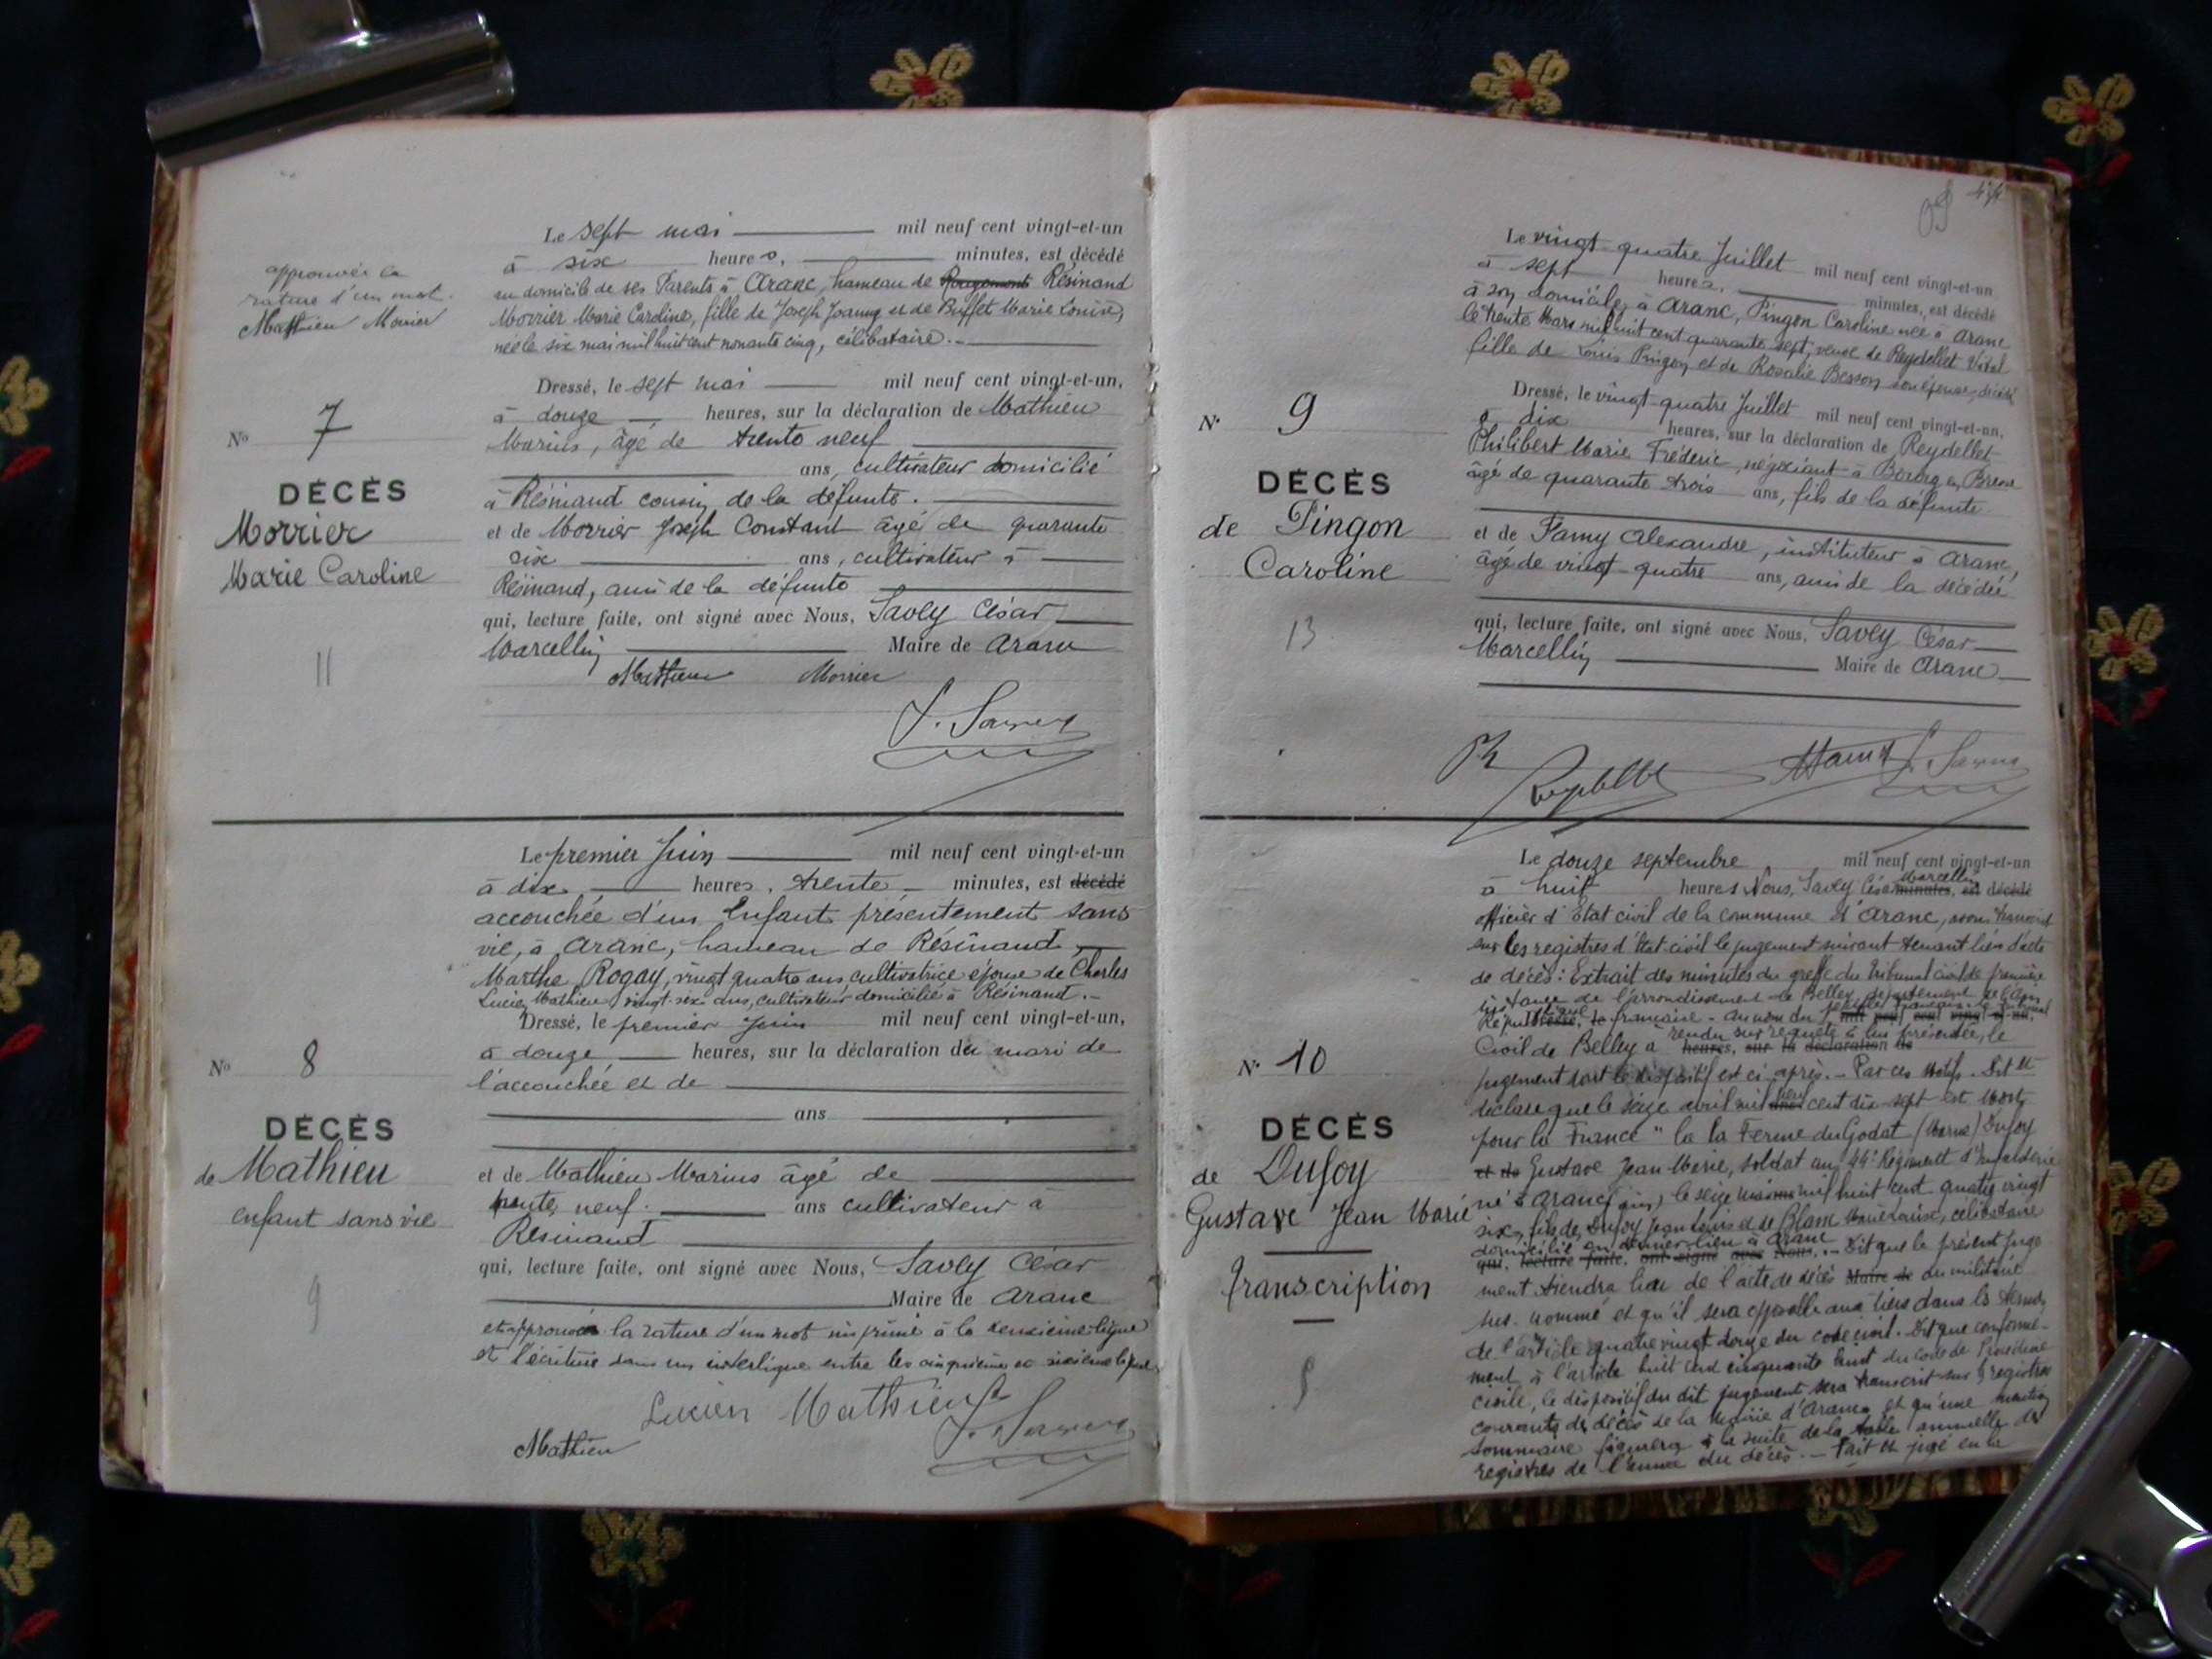 approuvée la
rature d'un mot.
Mathieu Morrier
No 7
DÉCÈS
Morrier
Marie Caroline
11
Le sept mai mil neuf cent vingt-et-un
à six heures, minutes, est décédé
au domicile de ses Parents à Aranc, hameau de Rougemont Résinand
Morrier Marie Caroline, fille de Joseph Joanny et de Buffet Marie Louise,
née le six mai mil huit cent nonante cinq, célibataire.
Dressé, le sept mai mil neuf cent vingt-et-un,
à douze heures, sur la déclaration de Mathieu
Marius, âgé de trente neuf
ans, cultivateur domicilié
à Résinand cousin de la défunte.
et de Morrier Joseph Constant âgé de quarante
six ans, cultivateur à
Résinand, ami de la défunte
qui, lecture faite, ont signé avec Nous, Savey César
Marcellin Maire de Aranc
Mathieu Morrier
No 8
DÉCÈS
de Mathieu
enfant sans vie
9
Le premier Juin mil neuf cent vingt-et-un
à dix heures, trente minutes, est décédé
accouchée d'un Enfant présentement sans
vie, à Aranc, hameau de Résinand,
Marthe Rogay, vingt quatre ans, cultivatrice épouse de Charles
Lucien Mathieu vingt-six ans, cultivateur domicilié à Résinand.-
Dressé, le premier Juin mil neuf cent vingt-et-un,
à douze heures, sur la déclaration du mari de
l'accouchée et de
ans
et de Mathieu Marius âgé de
trente neuf ans cultivateur à
Résinand
qui, lecture faite, ont signé avec Nous, Savey César
Maire de Aranc
et approuvée la rature d'un mot imprimé à la deuxième ligne
et l'écriture dans un interligne entre les cinquième et sixième lignes
Lucien Mathieu
Mathieu
N° 9
DÉCÈS
de Pingon
Caroline
13
Le vingt quatre Juillet mil neuf cent vingt-et-un
à sept heures, minutes, est décédé
à son domicile, à Aranc, Pingon Caroline née à Aranc
le trente Mars mil huit cent quarante sept, veuve de Reydellet Vital
fille de Louis Pingon et de Rosalie Besson son épouse, décédés
Dressé, le vingt-quatre Juillet mil neuf cent vingt-et-un,
à dix heures, sur la déclaration de Reydellet
Philibert Marie Fréderic, négociant à Bourg en Bresse
âgé de quarante trois ans, fils de la défunte
et de Famy Alexandre, instituteur à Aranc,
âgé de vingt-quatre ans, ami de la décédée
qui, lecture faite, ont signé avec Nous, Savey César
Marcellin Maire de Aranc
N° 10
DÉCÈS
de Dufoy
Gustave Jean Marie
Transcription
Le douze septembre mil neuf cent vingt-et-un
à huit heures Nous, Savey César Marcellin minutes, est décédé
officier d'État civil de la commune d'Aranc, avons transcrit
sur les registres d'état civil le jugement suivant tenant lieu d'acte
de décès: Extrait des minutes du greffe du tribunal civil de première
instance de l'arrondissement de Belley département de l'Ain
République française - Au nom du peuple français - le tribunal
Civil de Belley a rendu sur requête à lui présentée, le
heures, sur la déclaration de
jugement dont le dispositif est ci après. - Par ces Motifs. Dit et
déclare que le seize avril mil neuf cent dix-sept est Mort
pour la France" la Ferme du Godat (Marne) Dufoy
et de Gustave Jean Marie, soldat au 44e Régiment d'Infanterie
né à Aranc (Ain) le seize mil huit cent quatre vingt
six, fils de Dufoy Jean Louis et de Blanc célibataire
domicilié en dernier lieu à Aranc
qui, lecture faite, ont signé avec Nous, .- Dit que le présent juge
ment tiendra lieu de l'acte de décès Maire de du militaire
sus-nommé et qu'il sera opposable aux tiers dans les termes
de l'article quatre vingt douze du code civil. Dit que conformé-
ment à l'article huit cent cinquante huit du code de Procédure
civile, le dispositif du dit jugement sera transcrit sur les registres
courants de décès de la Mairie d'Aranc et qu'une mention
sommaire figurera à la suite de la table annuelle des
registres de l'année du décès. - Fait et jugé en la